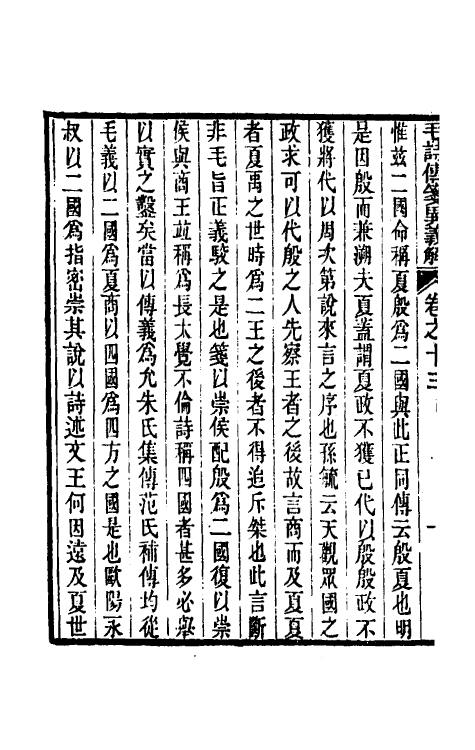 毛詩傳箋異義解 卷之十三 一
惟兹二國命稱夏殷爲二國與此正同傳云殷夏也明
是因殷而兼溯夫夏蓋謂夏政不獲已代以殷殷政不
獲將代以周次第說來言之序也孫毓云天觀眾國之
政求可以代殷之人先察王者之後故言商而及夏夏
者夏禹之世時爲二王之後者不得追斥桀也此言斷
非毛旨正義駮之是也箋以崇侯配殷爲二國復以崇
侯與商王竝稱爲長太覺不倫詩稱四國者甚多必舉
以實之鑿矣當以傳義爲允朱氏集傳范氏補傳均從
毛義以二國爲夏商以四國爲四方之國是也歐陽永
叔以二國爲指密崇其說以詩述文王何因遠及夏世